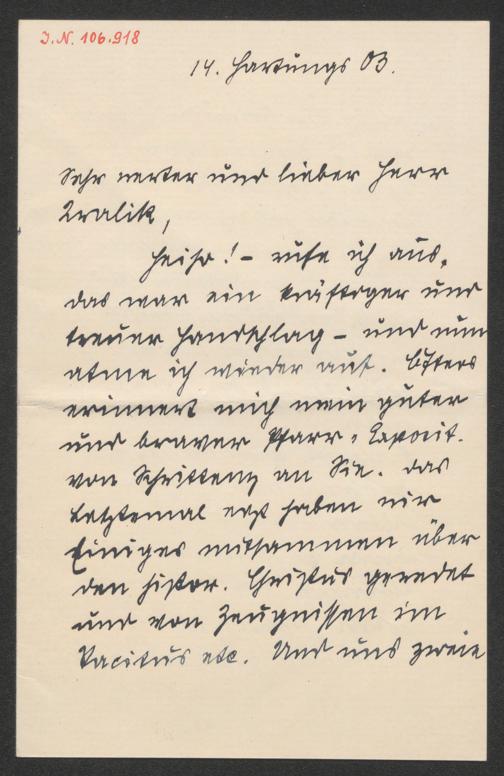 I.N. 106.918
14. Hartungs 03.
Sehr werter und lieber Herr
Kralik,
Heißa! – rufe ich aus,
das war ein kräftiger und
treuer Handschlag – und nun
atme ich wieder auf. Öfters
erinnert mich mein guter
und braver Pfarr-Exposit.
von Schrittenz an Sie. Das
Letztemal erst haben wir
Einiges mitsammen über
den histor. Christus geredet
und von Zeugnissen im
Tacitus etc. Und uns zweie